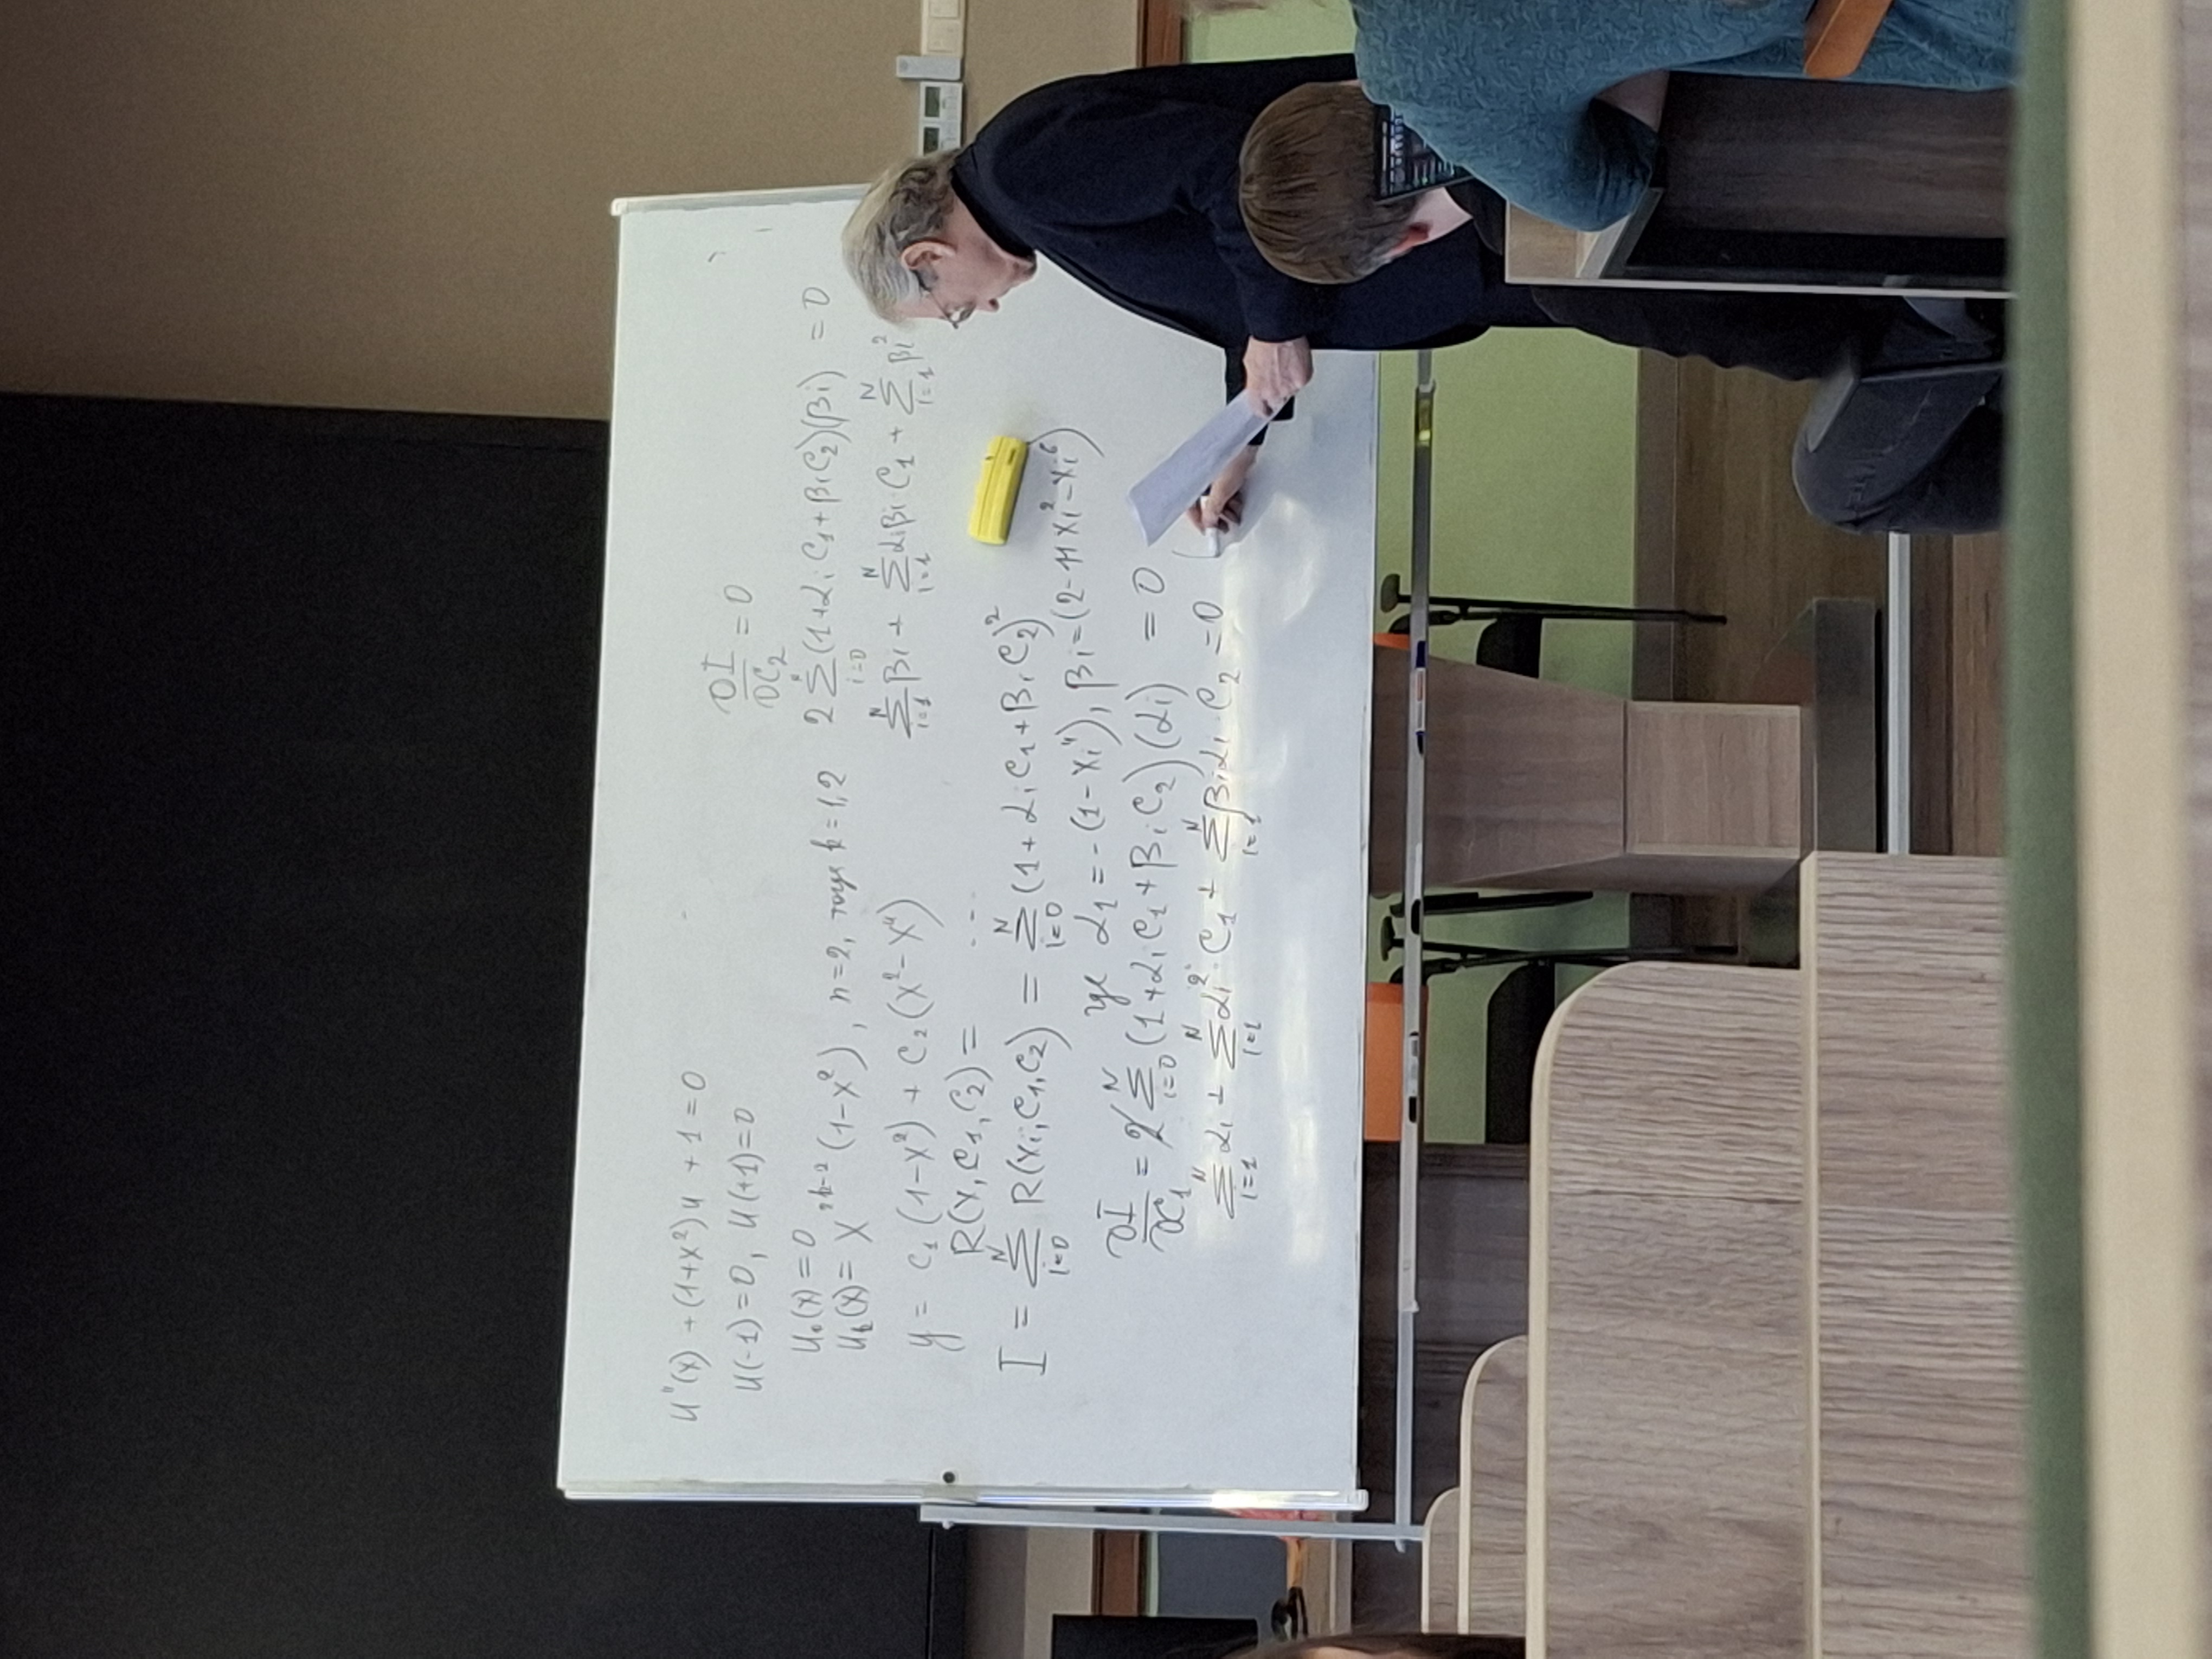 u''(x) + (1+x²)u + 1 = 0
u(-1) = 0, u(+1) = 0
u₀(x) = 0
uₖ(x) = x²ᵏ⁻² (1-x²), n=2, тогда k=1,2
y = c₁(1-x²) + c₂(x²-x⁴)
R(x, c₁, c₂) = ...
I = ∑ᵢ₌₀ᴺ R(xᵢ, c₁, c₂) = ∑ᵢ₌₀ᴺ (1 + αᵢ c₁ + βᵢ c₂)²
где α₁ = -(1-xᵢ⁴), βᵢ = (2-11xᵢ²-xᵢ⁶)
∂I/∂c₁ = 2 ∑ᵢ₌₀ᴺ (1 + αᵢ c₁ + βᵢ c₂)(αᵢ) = 0
∑ᵢ₌₁ᴺ αᵢ + ∑ᵢ₌₁ᴺ αᵢ² · c₁ + ∑ᵢ₌₁ᴺ βᵢαᵢ · c₂ = 0
∂I/∂c₂ = 0
2 ∑ᵢ₌₀ᴺ (1 + αᵢ c₁ + βᵢ c₂)(βᵢ) = 0
∑ᵢ₌₁ᴺ βᵢ + ∑ᵢ₌₁ᴺ αᵢβᵢ · c₁ + ∑ᵢ₌₁ᴺ βᵢ²